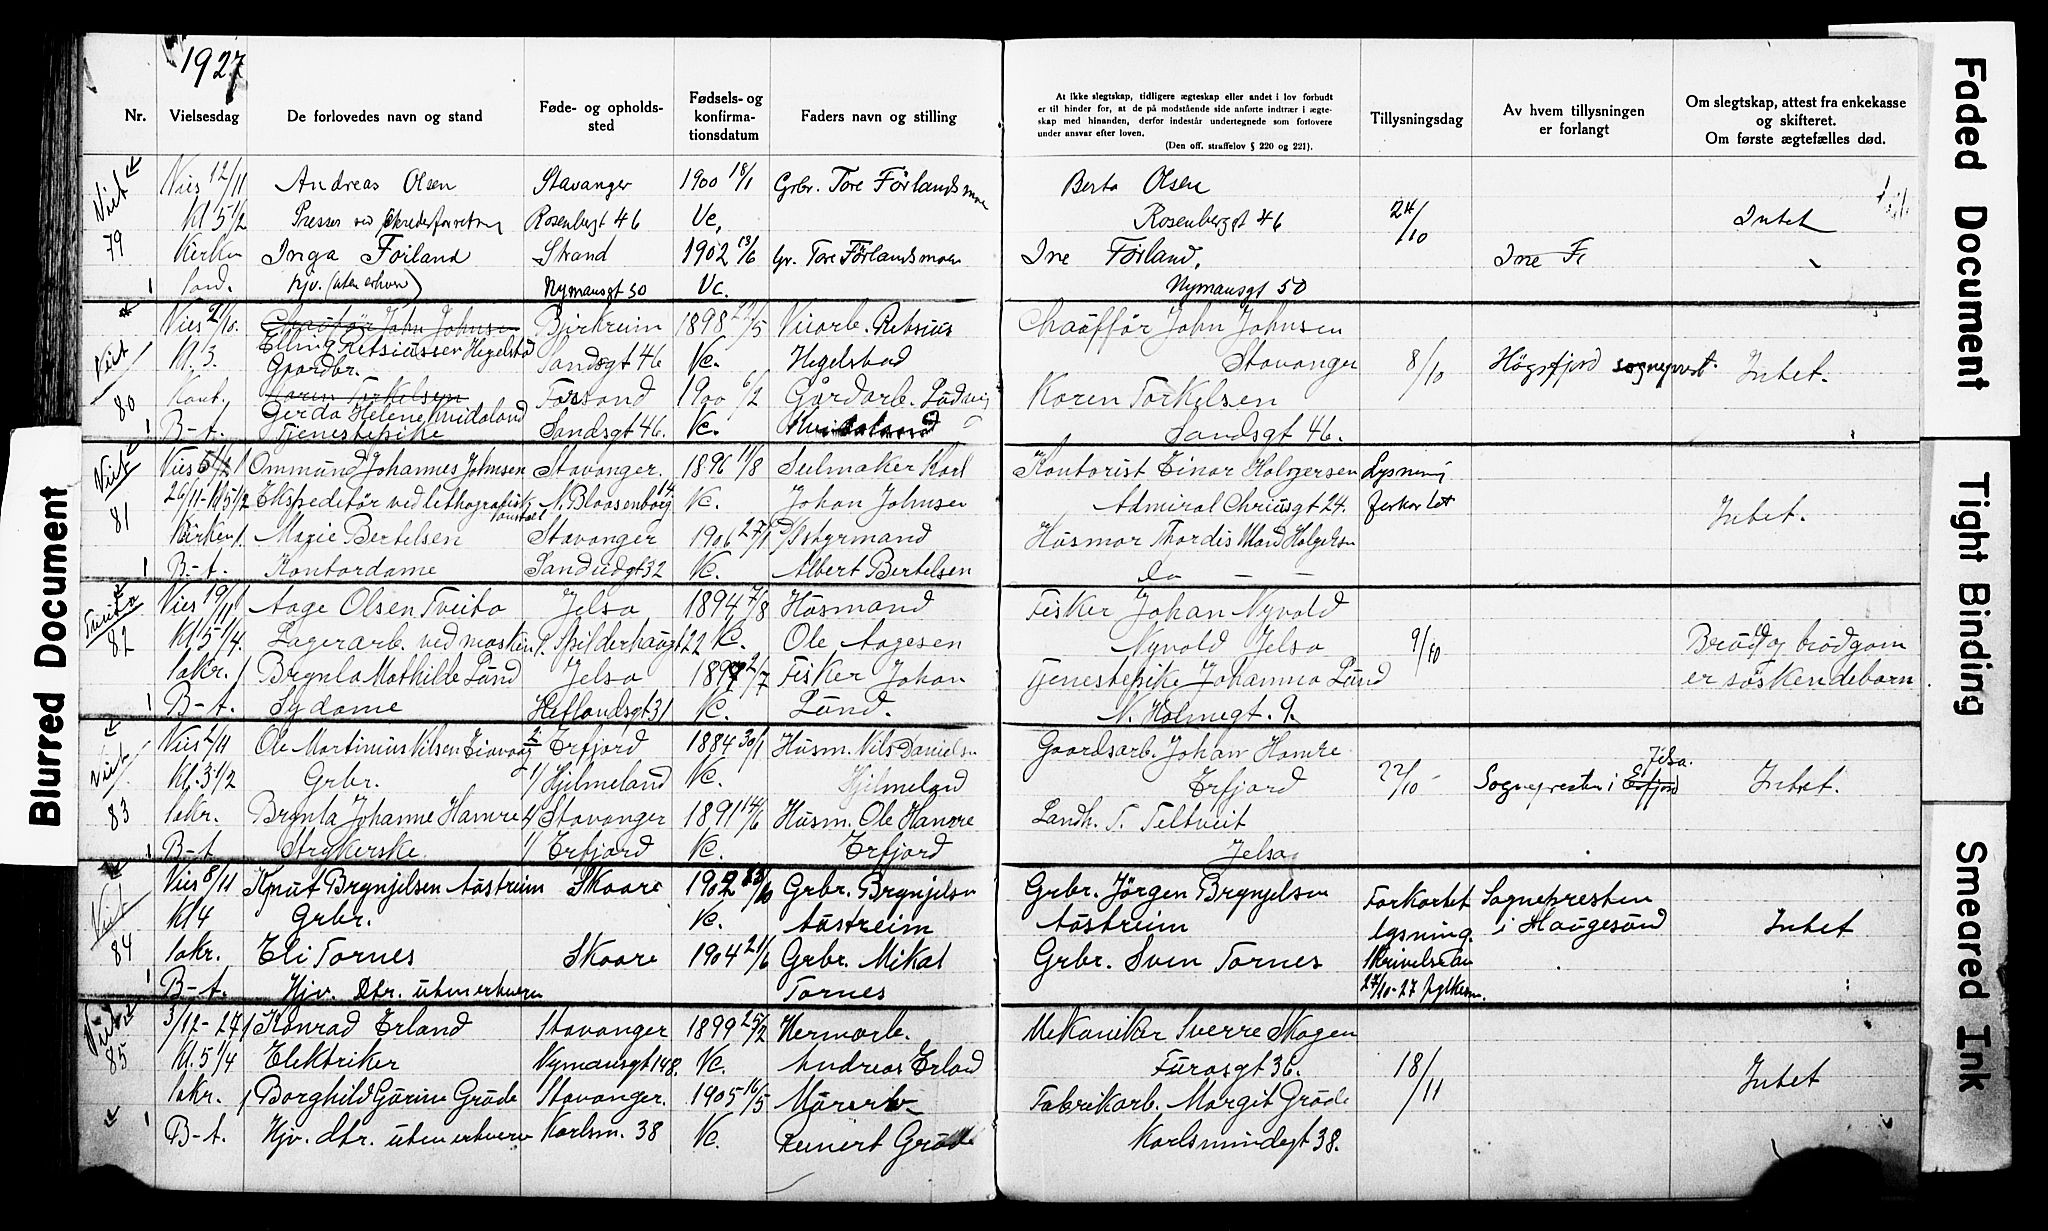 1927
Nr. Vielsesdag De forlovedes navn og stand Føde- og opholds-sted Fødsels- og konfirma-tionsdatum Faders navn og stilling
At ikke slegtskap, tidligere ægteskap eller andet i lov forbudt
er til hinder for, at de på modstående side anførte indtrær i ægte-
skap med hinanden, derfor indestår undertegnede som forlovere
under ansvar efter loven.
(Den off. straffelov § 220 og 221).
Tillysningsdag
Av hvem tillysningen
er forlangt
Om slegtskap, attest fra enkekasse
og skifteret.
Om første ægtefælles død.
Viet Vies 12/11 Andreas Olsen Stavanger 1900 18/1 Grbr. Tore Førlandsmoen Berta Olsen
Kl 5 1/2 Presser ved Rosenbergt 46 Vc. Rosenbergt 46 24/10 Intet
79 Kirken Inga Førland Strand 1902 13/6 Gr. Tore Førlandsmoen Ine Førland, Ine F.
Hjv. (uten erhverv) Nymansgt 50 Vc. Nymansgt 50
Vies 2/10. Chauffør John Johnsen Bjerkreim 1898 22/5 Veiarb. Retsius Chaüffør John Johnsen
Viet Kl. 3. Elling Retsiussen Hegelstad Sandsgt 46 Vc. Hegelstad Stavanger 8/10 Högsfjord sogneprest. Intet.
Gaardbr.
80 Kont. Karen Torkelsen Forsand 1900 6/2 Gårdarb. Ludvig Karen Torkelsen
Gerda Helene Hvidaland
B-t. Tjenestepike Sandsgt 46. Vc. Hvidaland Sandsgt 46.
Viet Vies Ommund Johannes Johnsen Stavanger. 1896 11/8 Seilmaker Karl Kontorist Einar Holgersen Lysning
26/11 - kl 5 1/2 Ekspeditør ved lithografisk anstalt N. Blaasenborg 14 Vc. Johan Johnsen Admiral Chrüsgt 24. forkortet Intet.
81 Kirken Marie Bertelsen Stavanger 1906 27/1 Styrmand Husmor Thordis Holgersen
B-t. Kontordame Sandeidgt 32 Vc. Albert Bertelsen do - -
Tveita Vies 19/11 Aage Olsen Tveita Jelsa 1894 7/8 Husmand Fisker Johan Nyvold
82 Kl 5 1/4. Lagerarb. ved maskin P. Spilderhaugt 22 Vc. Ole Aagesen Nyvold Jelsa 9/10 Brud og brudgom
sakr. Brynla Mathilde Lund Jelsa 1897 2/7 Fisker Johan Tjenestepike Johanna Lund er søskendebarn
B-t. Sydame Heflandsgt 31 Vc. Lund. N. Holmegt. 9.
Viet Vies 2/11 Ole Martinius Nilsen Erfjord 1884 30/1 Husm. Nils Danielsen Gaardsarb. Johan Hamre Jelsa.
Kl. 3 1/2 Grbr. Hjelmeland Vc. Hjelmeland Erfjord 22/10 Sognepresten i Erfjord Intet.
83 sakr. Brynla Johanne Hamre Stavanger 1891 14/6 Husm. Ole Hamre Landh. T. Teltveit
B-t Strykerske. Erfjord Vc. Erfjord Jelsa
Viet Vies 8/11 Knut Brynjelsen Austreim Skaare 1902 Grbr. Brynjelsen Grbr. Jörgen Brynjelsen Forkortet Sognepresten
Kl 4 Grbr. Vc. Austreim Austreim lysning. i Haugesund Intet
84 sakr. Eli Tornes Skaare 1904 21/6 Grbr. Mikal Grbr. Sven Tornes Skrivelse
B-t. Hjv. Dtr. uten erhverv Tornes 27/10-27
3/12-27 Konrad Erland Stavanger 1899 25/2 Hermarb. Mekaniker Sverre Skogen
85 Kl. 5 1/4 Elektriker Nymansgt 148. Vc. Andreas Erland Furasgt 36. 18/11 Intet
sakr. Borghild Gurine Gröde Stavanger. 1905 16/5 Mürarb. Fabrikarb. Margit Gröde
B-t. Hjv. dtr. uten erhverv Karlsm. 38 Vc. Reinert Gröde Karlsmindegt 38.
Blurred Document
Faded Document
Tight Binding
Smeared Ink